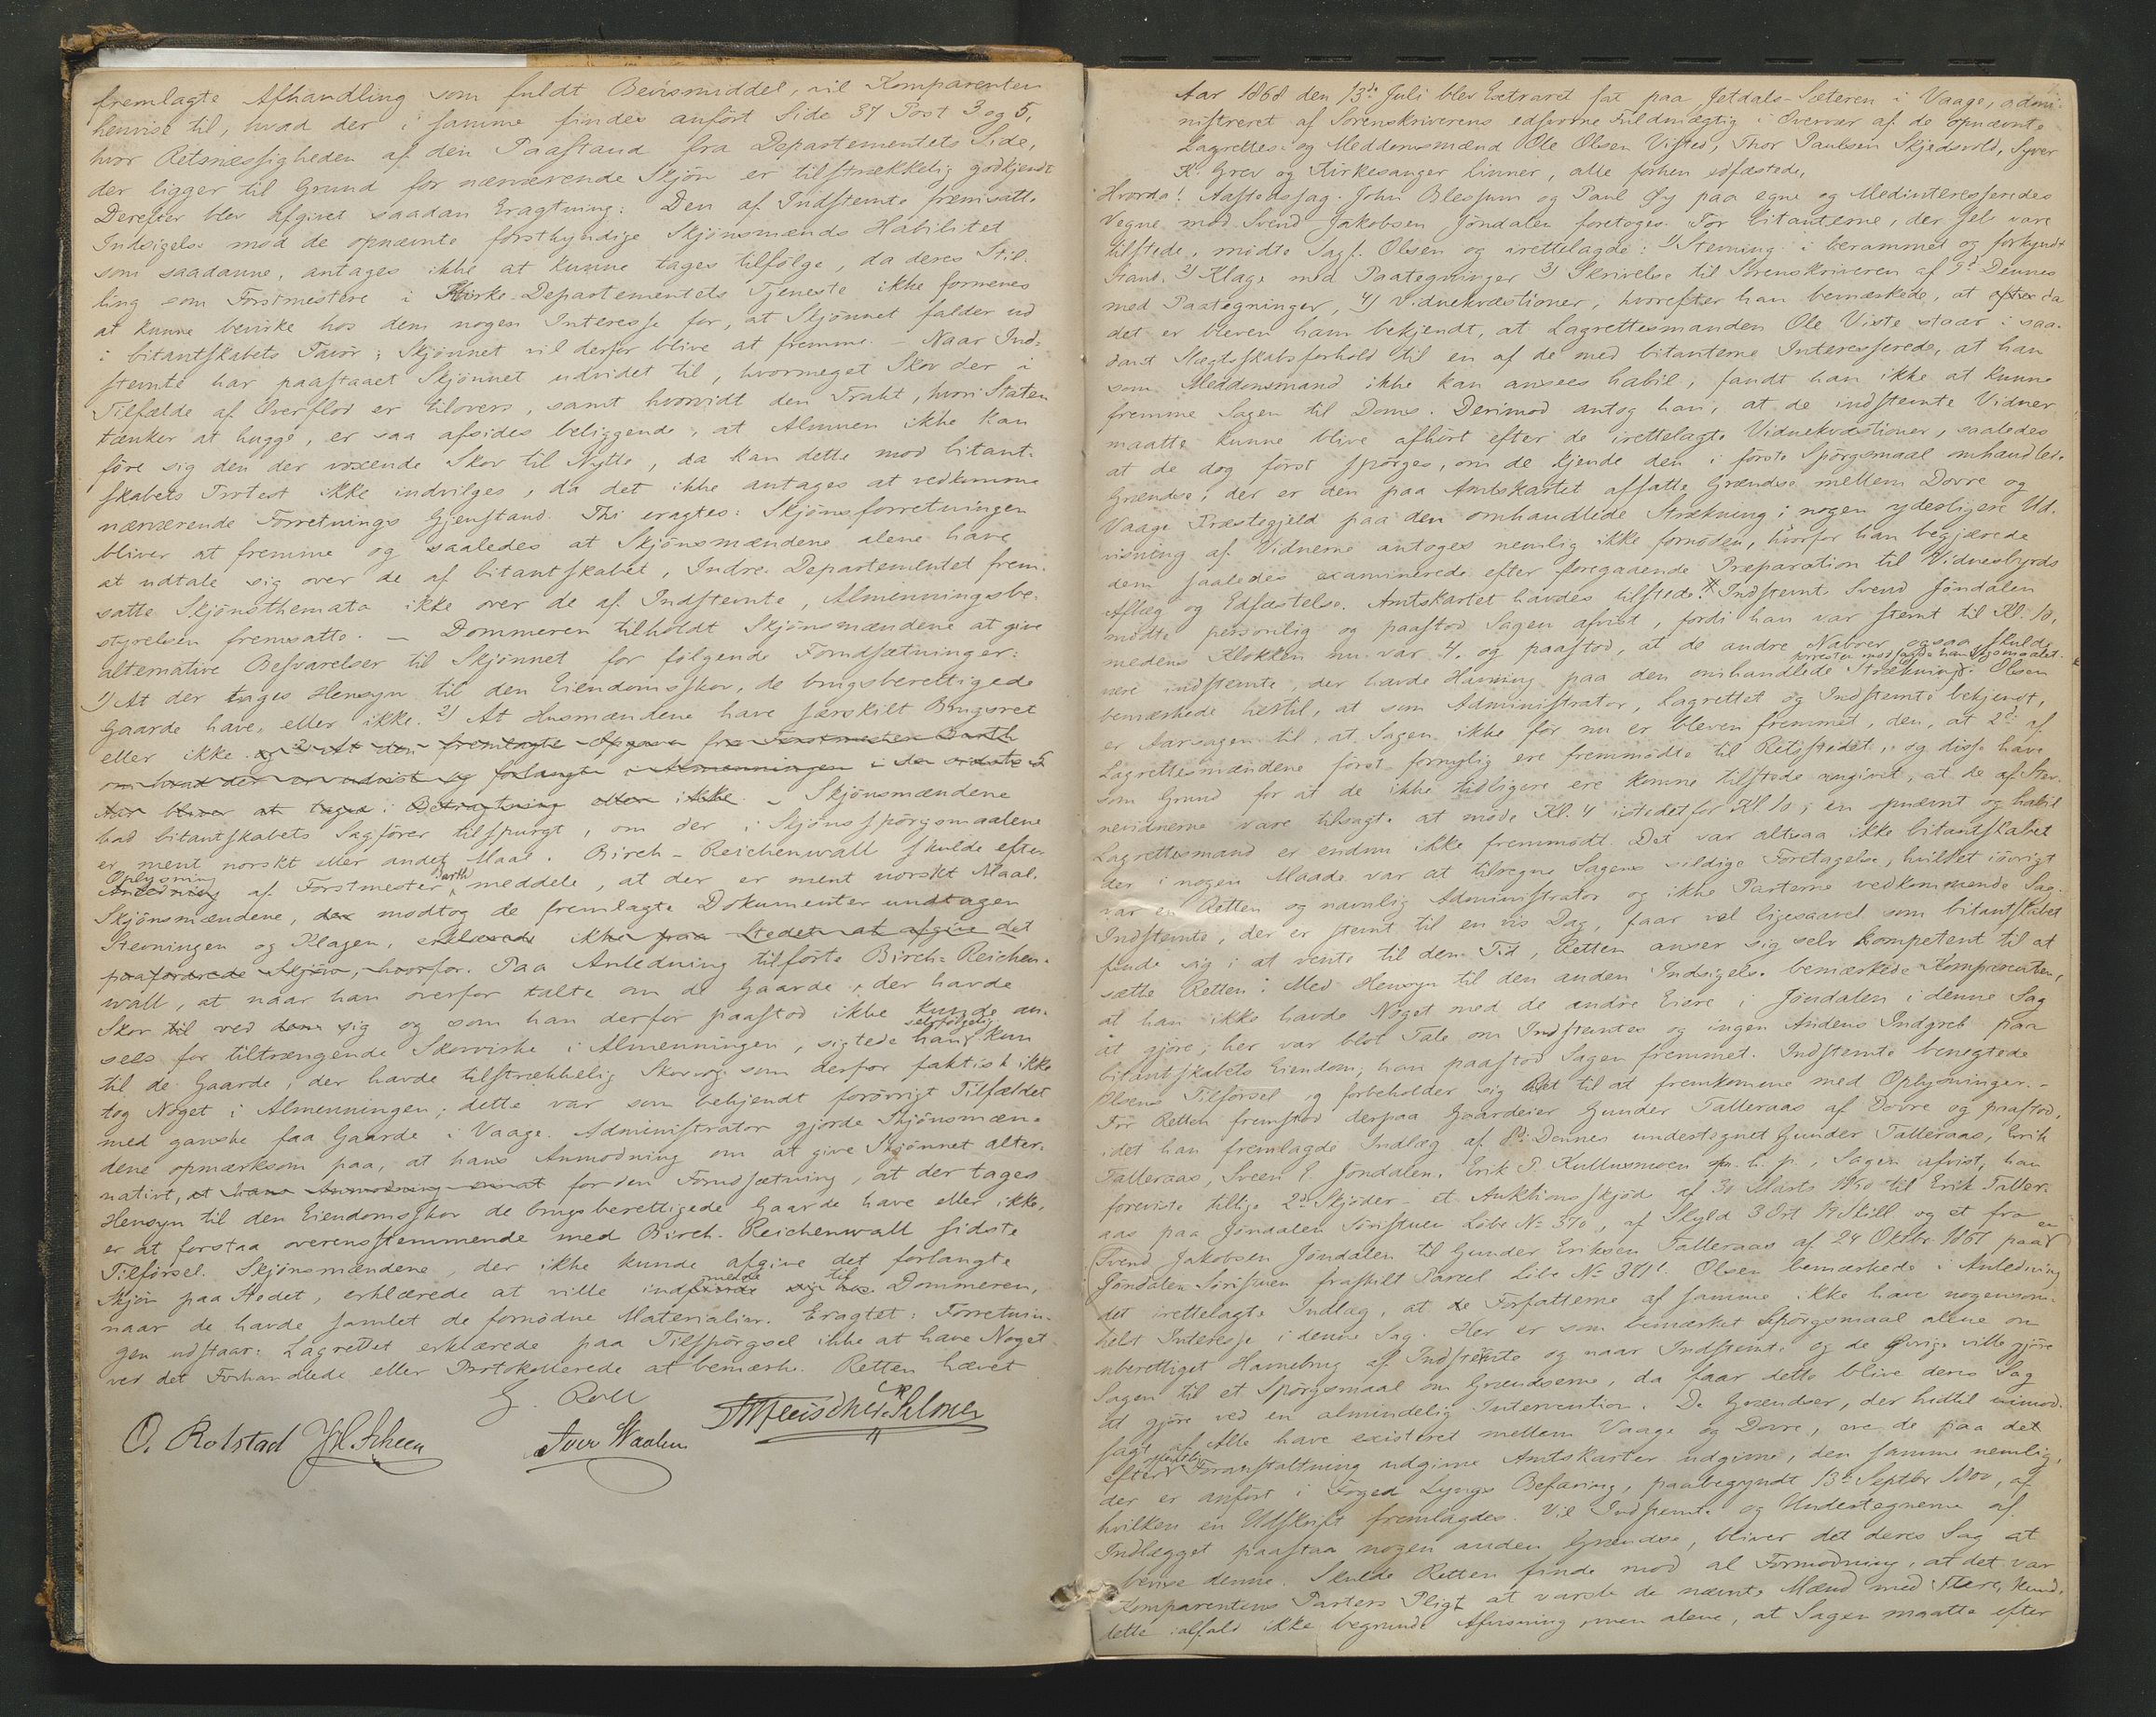 fremlagte Afhandling som fuldt Bevismiddel, vil Komparenten
henvise til, hvad der i samme findes anført Side 37 Post 3 og 5,
hvor Retsmæssigheden af den Paastand fra Departementets Side,
der ligger til Grund for nærværende Skjøn er tilstrækkelig godkjendt
Derefter blev afgivet saadan Eragtning: Den af Indstevnte fremsatte
Indsigelse mod de opnævnte forstkyndige Skjønsmænds Habilitet
som saadanne, antages ikke at kunne tages tilfølge, da deres Stil-
ling som Forstmestere i Kirke-Departementets Tjeneste ikke formenes
at kunne bevirke hos dem nogen Interesse for, at Skjønnet falder ud
i Citantskabets Favør; Skjønnet vil derfor blive at fremme. – Naar Ind-
stevnte har paastaaet Skjønnet udvidet til, hvormeget Skov der i
Tilfælde af Overflod er tilovers, samt hvorvidt den Trakt, hvori Staten
tænker at hugge, er saa afsides beliggende, at Almuen ikke kan
føre sig den der voxende Skov til Nytte, da kan dette mod Citant-
skabets Protest ikke indvilges, da det ikke antages at vedkomme
nærværende Forretnings Gjenstand. Thi eragtes: Skjønsforretningen
bliver at fremme og saaledes at Skjønsmændene alene have
at udtale sig over de af Citantskabet, Indre-Departementet frem-
satte Skjønsthemata ikke over de af Indstevnte, Almenningsbe-
styrelsen fremsatte. – Dommeren tilholdt Skjønsmændene at give
alternative Besvarelser til Skjønnet for følgende Forudsætninger:
1) At der tages Hensyn til den Eiendomsskov, de brugsberettigede
Gaarde have, eller ikke. 2) At Husmændene have særskilt Brugsret
eller ikke. og 3) At den fremlagte Opgave fra Forstmester Barth
om hvad der er udvist og forlangt i Almenningen i de sidste 5
Aar bliver at tages i Betragtning eller ikke. – Skjønsmændene
bad Citantskabets Sagfører tilspurgt, om der i Skjønsspørgsmaalene
er ment norskt eller andet Maal. Birch-Reichenwald skulde efter
Oplysning
Anledning af Forstmester Barth meddele, at der er ment norskt Maal.
Skjønsmændene, der modtog de fremlagte Dokumenter undtagen
Stevningen og Klagen, erklærede ikke paa Stedet at afgive det
paafordrede Skjøn, hvorfor. Paa Anledning tilførte Birch-Reichen-
wald, at naar han ovenfor talte om de Gaarde, der havde
Skov til ved dem sig og som han derfor paastod ikke kunde an-
sees for tiltrængende Skovvirke i Almenningen, sigtede han selvfølgelig kun
til de Gaarde, der havde tilstrækkelig Skov og som derfor faktisk ikke
tog Noget i Almenningen; dette var som bekjendt forøvrigt Tilfældet
med ganske faa Gaarde i Vaage. Administrator gjorde Skjønsmæn-
dene opmærksom paa, at hans Anmodning om at give Skjønnet alter-
nativt, at hans Anmodning om at for den Forudsætning, at der tages
Hensyn til den Eiendomsskov de brugsberettigede Gaarde have eller ikke,
er at forstaa overensstemmende med Birch-Reichenwald sidste
Tilførsel. Skjønsmændene, der ikke kunde afgive det forlangte
Skjøn paa Stedet, erklærede at ville indmelde til Dommeren,
naar de havde samlet de fornødne Materialier. Eragtet: Forretnin-
gen udstaar. Lagrettet erklærede paa Tilspørgsel ikke at have Noget
ved det Forhandlede eller Protokollerede at bemærke. Retten hævet
G. Roll
O. Rolstad Iver Waalen
Aar 1868 den 13de Juli blev Extraret sat paa Jetdals-Sæteren i Vaage, admi-
nistreret af Sorenskriverens edsvorne Fuldmægtig i Overvær af de opnævnte
Lagrettes- og Meddomsmænd Ole Olsen Visted, Thor Paulsen Skjedsvold, Syver
K. Grev og Kirkesanger Linner, alle forhen edfæstede,
Hvorda! Aastedssag. John Blessum og Paul Øy paa egne og Medinteresseredes
Vegne mod Svend Jakobsen Jøndalen foretoges. For Citanterne, der selv vare
tilstede, mødte Sagf. Olsen og irettelagde: 1) Stevning i berammet og forkyndt
Stand. 2) Klage med Paategninger 3) Skrivelse til Sorenskriveren af 9de Dennes
med Paategninger, 4) Vidnekvæstioner, hvorefter han bemærkede, at efter da
det er bleven ham bekjendt, at Lagrettesmanden Ole Viste staar i saa-
dant Slægtskabsforhold til en af de med Citanterne Interesserede, at han
som Meddomsmand ikke kan ansees habil, fandt han ikke at kunne
fremme Sagen til Doms. Derimod antog han, at de indstevnte Vidner
maatte kunne blive afhørt efter de irettelagte Vidnekvæstioner, saaledes
at de dog først spørges, om de kjende den i første Spørgsmaal omhandlede
Grændse, der er den paa Amtskartet afsatte Grændse mellem Dovre og
Vaage Præstegjeld paa den omhandlede Strækning; nogen yderligere Ud-
visning af Vidnerne antoges nemlig ikke fornøden, hvorfor han begjærede
dem saaledes examinerede efter foregaaende Præparation til Vidnesbyrds
Aflæg og Edfæstelse. Amtskartet havdes tilstede. Indstevnte Svend Jøndalen
mødte personlig og paastod Sagen afvist, fordi han var stevnt til Kl. 10,
medens Klokken nu var 4. og paastod, at de andre Naboer ogsaa skulde
være indstevnte, der havde Havning paa den omhandlede Strækning. Olsen
bemærkede hertil, at som Administrator, Lagrettet og Indstevnte bekjendt,
er Aarsagen til, at Sagen ikke før nu er bleven fremmet, den, at 2de af
Lagrettesmændene først fornylig ere fremmødte til Retsstedet, og disse have
som Grund for at de ikke tidligere ere komne tilstede angivet, at de af Stev-
nevidnerne vare tilsagte at møde Kl. 4 istedetfor Kl 10; en opnævnt og habil
Lagrettesmand er endnu ikke fremmødt. Det var altsaa ikke Citantskabet
der i nogen Maade var at tilregne Sagens sildige Foretagelse, hvilket iøvrigt
var en Retten og navnlig Administrator og ikke Parterne vedkommende Sag.
Indstevnte, der er stevnt til en vis Dag, faar vel ligesaavel som Citantskabet
finde sig i at vente til den Tid, Retten anser sig selv kompetent til at
sætte Retten. Med Hensyn til den anden Indsigelse bemærkede Komparenten,
at han ikke havde Noget med de andre Eiere i Jøndalen i denne Sag
at gjøre; her var blot Tale om Indstevntes og ingen Andens Indgreb paa
Citantskabets Eiendom; han paastod Sagen fremmet. Indstevnte benegtede
Olsens Tilførsel og forbeholder sig Ret til at fremkomme med Oplysninger. –
For Retten fremstod derpaa Gaardeier Gunder Talleraas af Dovre og paastod,
idet han fremlagde Indlæg af 8de Dennes undertegnet Gunder Talleraas, Erik
Talleraas, Sveen E. Jøndalen, Erik P. Kullusmoen m. h. p., Sagen afvist, han
foreviste tillige 2de Skjøder – et Auktionsskjøde af 30 Marts 1850 til Erik Taller-
aas paa Jøndalen Søristuen Løbe No 370, af Skyld 3 Ort 19 Skill og et fra
Svend Jakobsen Jøndalen til Gunder Eriksen Talleraas af 24 Oktbr. 1861 paa en
Jøndalen Søristuen fraskilt Parcel Løbe No 371. Olsen bemærkede i Anledning
det irettelagte Indlæg, at de Forfatterne af samme ikke have nogensom-
helst Interesse i denne Sag. Her er som bemærket Spørgsmaal alene om
uberettiget Havnebrug af Indstevnte og naar Indstevnte og de øvrige ville gjøre
Sagen til et Spørgsmaal om Grændserne, da faar dette blive deres Sag
at gjøre ved en almindelig Intervention. De Grændser, der hidtil uimod-
sagt af Alle have existeret mellem Vaage og Dovre, ere de paa det
efter offentlig Foranstaltning udgivne Amtskarter udgivne, den samme nemlig,
der er anført i Foged Lyngs Befaring, paabegyndt 13de Septbr 1800, af
hvilken en Udskrift fremlagdes. Vil Indstevnte og Undertegnerne af
Indlægget paastaa nogen anden Grændse, bliver det deres Sag at
bevise denne. Skulde Retten finde mod al Formodning, at det var
Komparentens Parters Pligt at varsle de nævnte Mænd med Flere, kund-
dette ialfald ikke begrunde Afvisning, men alene, at Sagen maatte efter